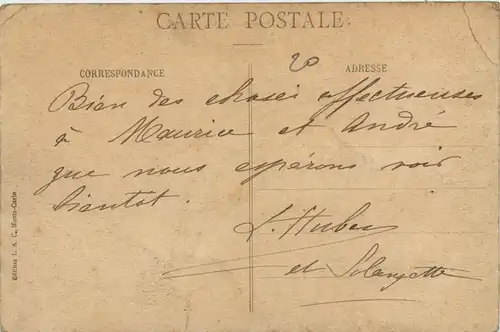 CARTE POSTALE
20
CORRESPONDANCE
ADRESSE
Bien des choses affectueuses
à Maurice et André
que nous espérons voir
bientot.
L. Huber
et Solangette
Edition L. A. C., Monte-Carlo